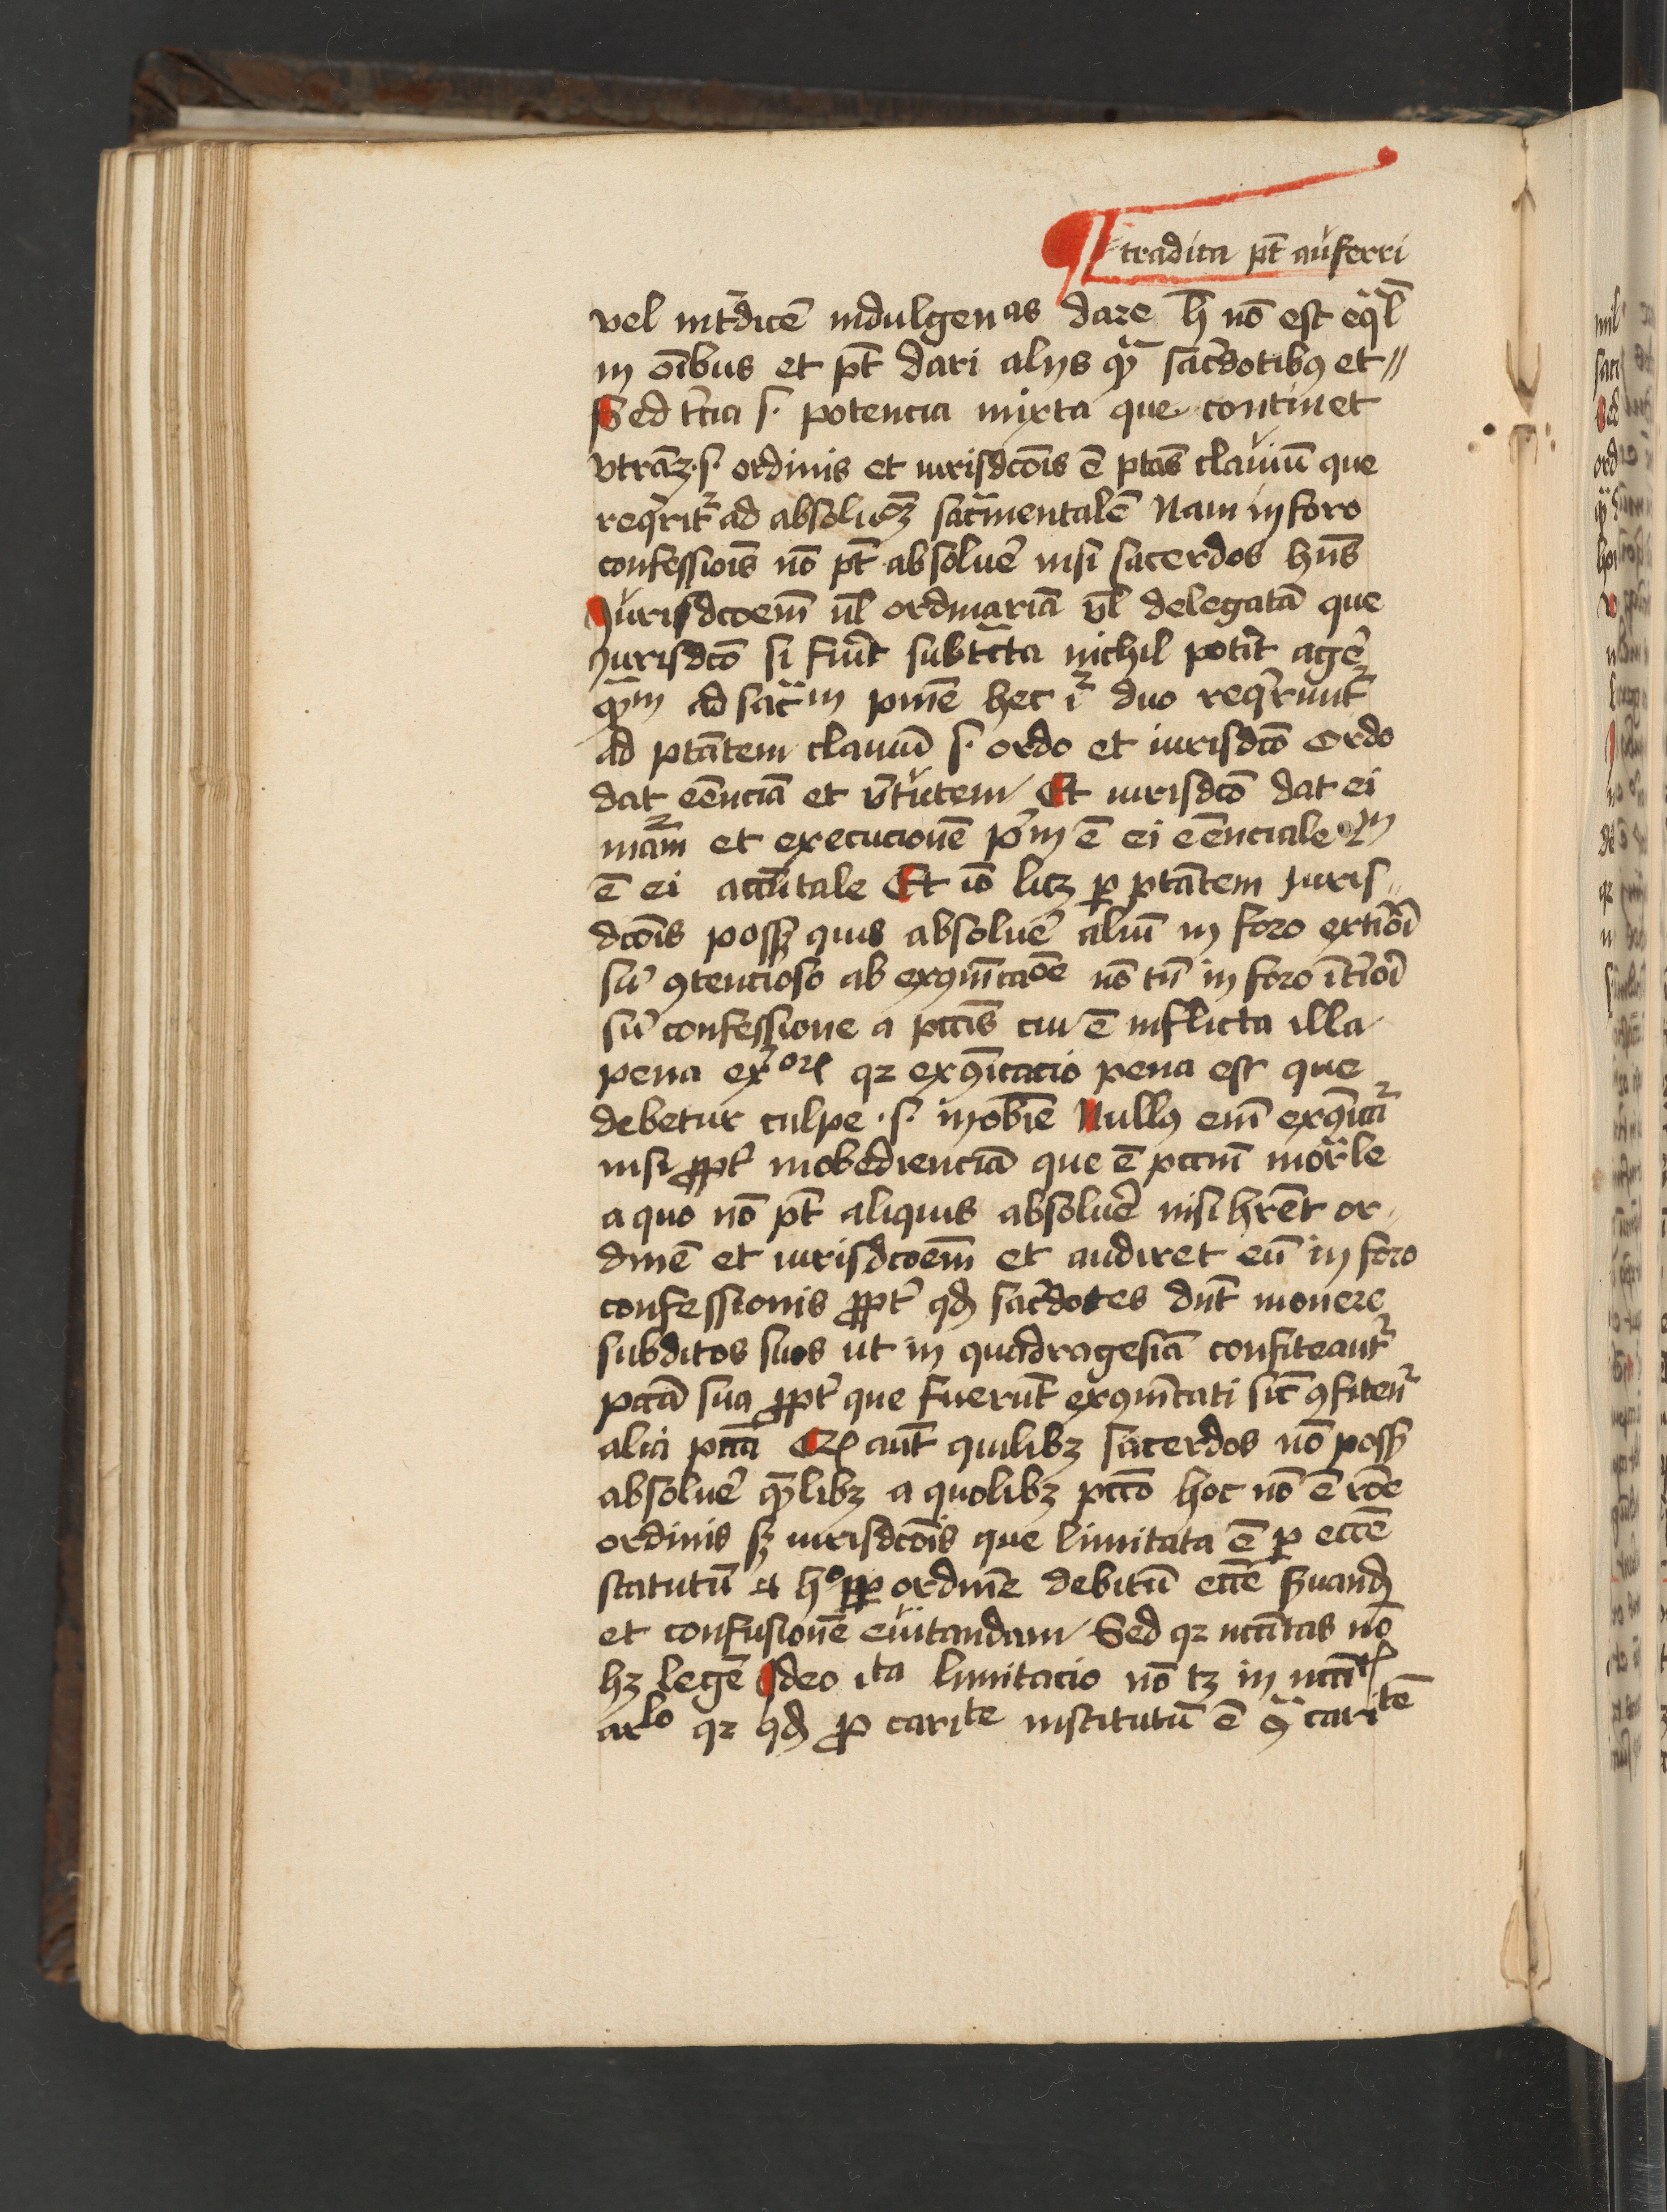 tradita pt̄ auferri
vel int̄dicē indulgenᵃˢ dare h̄ nō est eq̄l
in oībus et pt̄ dari alijs qᵃ̄ sac̄dotibꝫ et //
Sed t̄cia s. potencia mixta que continet
vtrāqꝫ s. ordinis et iurisdcōīs ē ptās clauiū que
req̄ritᷣ ad absolucōꝫ sac̄mentalē Nam in foro
confessiōīs nō pt̄ absoluē nisi sacerdos hn̄s
Jurisdcōem̄ vl̄ ordinariā vl̄ delegatā que
Jurisdcō si fu̇it subtᷓcta nichil pot̄it agē
qᵃ̄m ad sac̄m pn̄ie hec iᷣ duo req̄runtᷣ
ad ptātem clauiū s. ordo et iurisdcō Ordo
dat eēnciā et v̄tutem Et iurisdcō dat ei
mām et execucionē pᷓm ē ei eēnciale 2m
ē ei accn̄tale Et iō licꝫ ꝑ ptātem Juris
dcōīs possꝫ quis absoluē aliū in foro ext̄iōī
siū ꝯtencioso ab exꝯīcaōe nō tn̄ in foro īt̄iōī
siū confessione a pccīs cui ē inflicta illa
pena ext̄ior̄ qꝛ exꝯīcacio pena est que
debetur culpe .s. inobīe Nullꝰ em̄ exꝯīcatᷣ
nisi ꝓpt̄ inobedienciā que ē pccm̄ mortᵃle
a quo nō pt̄ aliquis absoluē nisi hr̄et or
dinē et iurisdcōem̄ et audiret eū in foro
confessionis ꝓpt̄ qḋ sac̄dotes dn̄t mouere
subditos suos ut in quadragesiā confiteantᷣ
pccā sua ꝓpt̄ que fuerūt exꝯīcati sic̄ ꝯfitenᷣ
alia pccā Qꝛ aūt quilibꝫ sacerdos nō possꝫ
absoluē quēlibꝫ a quolibꝫ pccō hoc nō ē rōe
ordinis sꝫ iurisdcōīs que limitata ē ꝑ eccē
statutū et h° ꝓpꝑ ordinē debitū eccē ẜuand̄
et confusionē euitandam Sed qꝛ nccītas nō
hꝫ legē Ideo ita limitacio nō tꝫ in nccītīs
arᵗⁱclo qꝛ qḋ ꝓ caritᵉ institutū ē ꝯᵃ caritᵉ̄